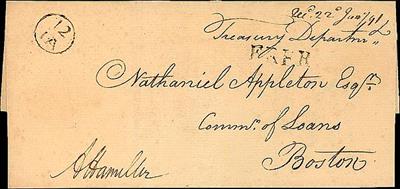 Rec.d 22d Jany 91
Treasury Departmt
FREE
12
IA
Nathaniel Appleton Esqr.
Commr. of Loans
Boston
A Hamilton